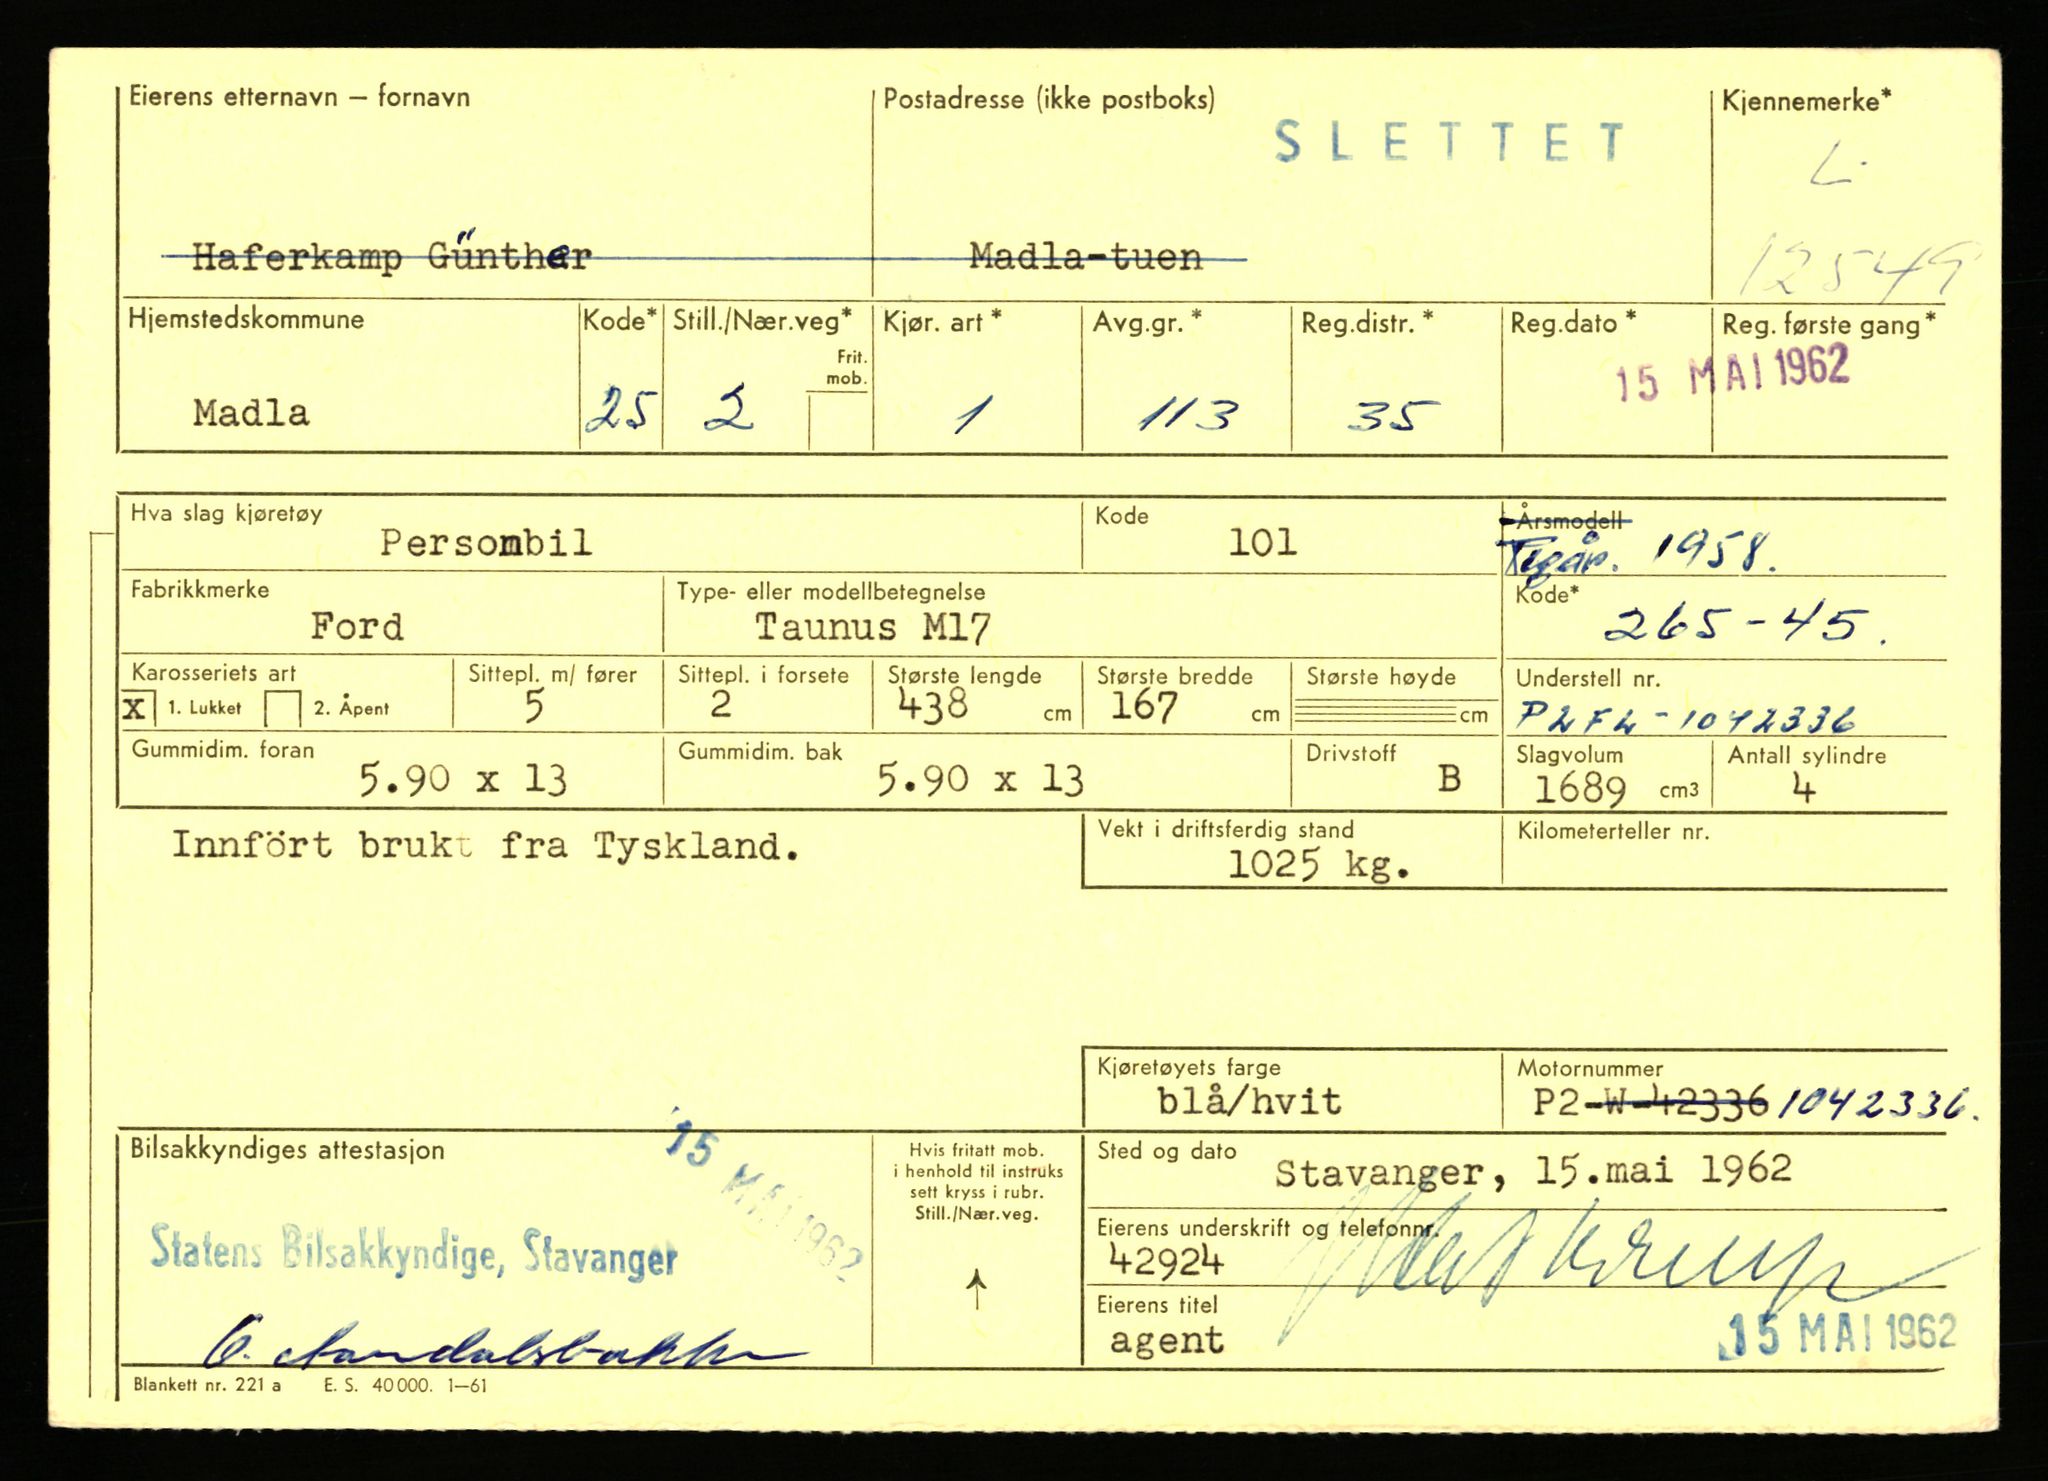 Eierens etternavn – fornavn
Postadresse (ikke postboks)
Kjennemerke*
SLETTET
L-
Haferkamp Günther
Madla-tuen
12549
Hjemstedskommune
Kode*
Still./Nær.veg*
Frit. mob.
Kjør. art *
Avg.gr. *
Reg.distr. *
Reg.dato *
Reg. første gang *
15 MAI 1962
Madla
25
2
1
113
35
Hva slag kjøretøy
Personbil
Kode
101
Årsmodell
1958.
Fabrikkmerke
Ford
Type- eller modellbetegnelse
Taunus M17
Kode*
265-45.
Karosseriets art
X 1. Lukket 2. Åpent
Sittepl. m/ fører
5
Sittepl. i forsete
2
Største lengde
438 cm
Største bredde
167 cm
Største høyde
cm
Understell nr.
P2FL-1042336
Gummidim. foran
5.90 x 13
Gummidim. bak
5.90 x 13
Drivstoff
B
Slagvolum
1689 cm3
Antall sylindre
4
Innfört brukt fra Tyskland.
Vekt i driftsferdig stand
1025 kg.
Kilometerteller nr.
Kjøretøyets farge
blå/hvit
Motornummer
P2-W-42336 1042336.
Bilsakkyndiges attestasjon
15 MAI 1962
Statens Bilsakkyndige, Stavanger
Hvis fritatt mob.
i henhold til instruks
sett kryss i rubr.
Still./Nær.veg.
Sted og dato
Stavanger, 15.mai 1962
Eierens underskrift og telefonnr.
42924
Eierens titel
agent
15 MAI 1962
Blankett nr. 221 a E. S. 40 000. 1–61